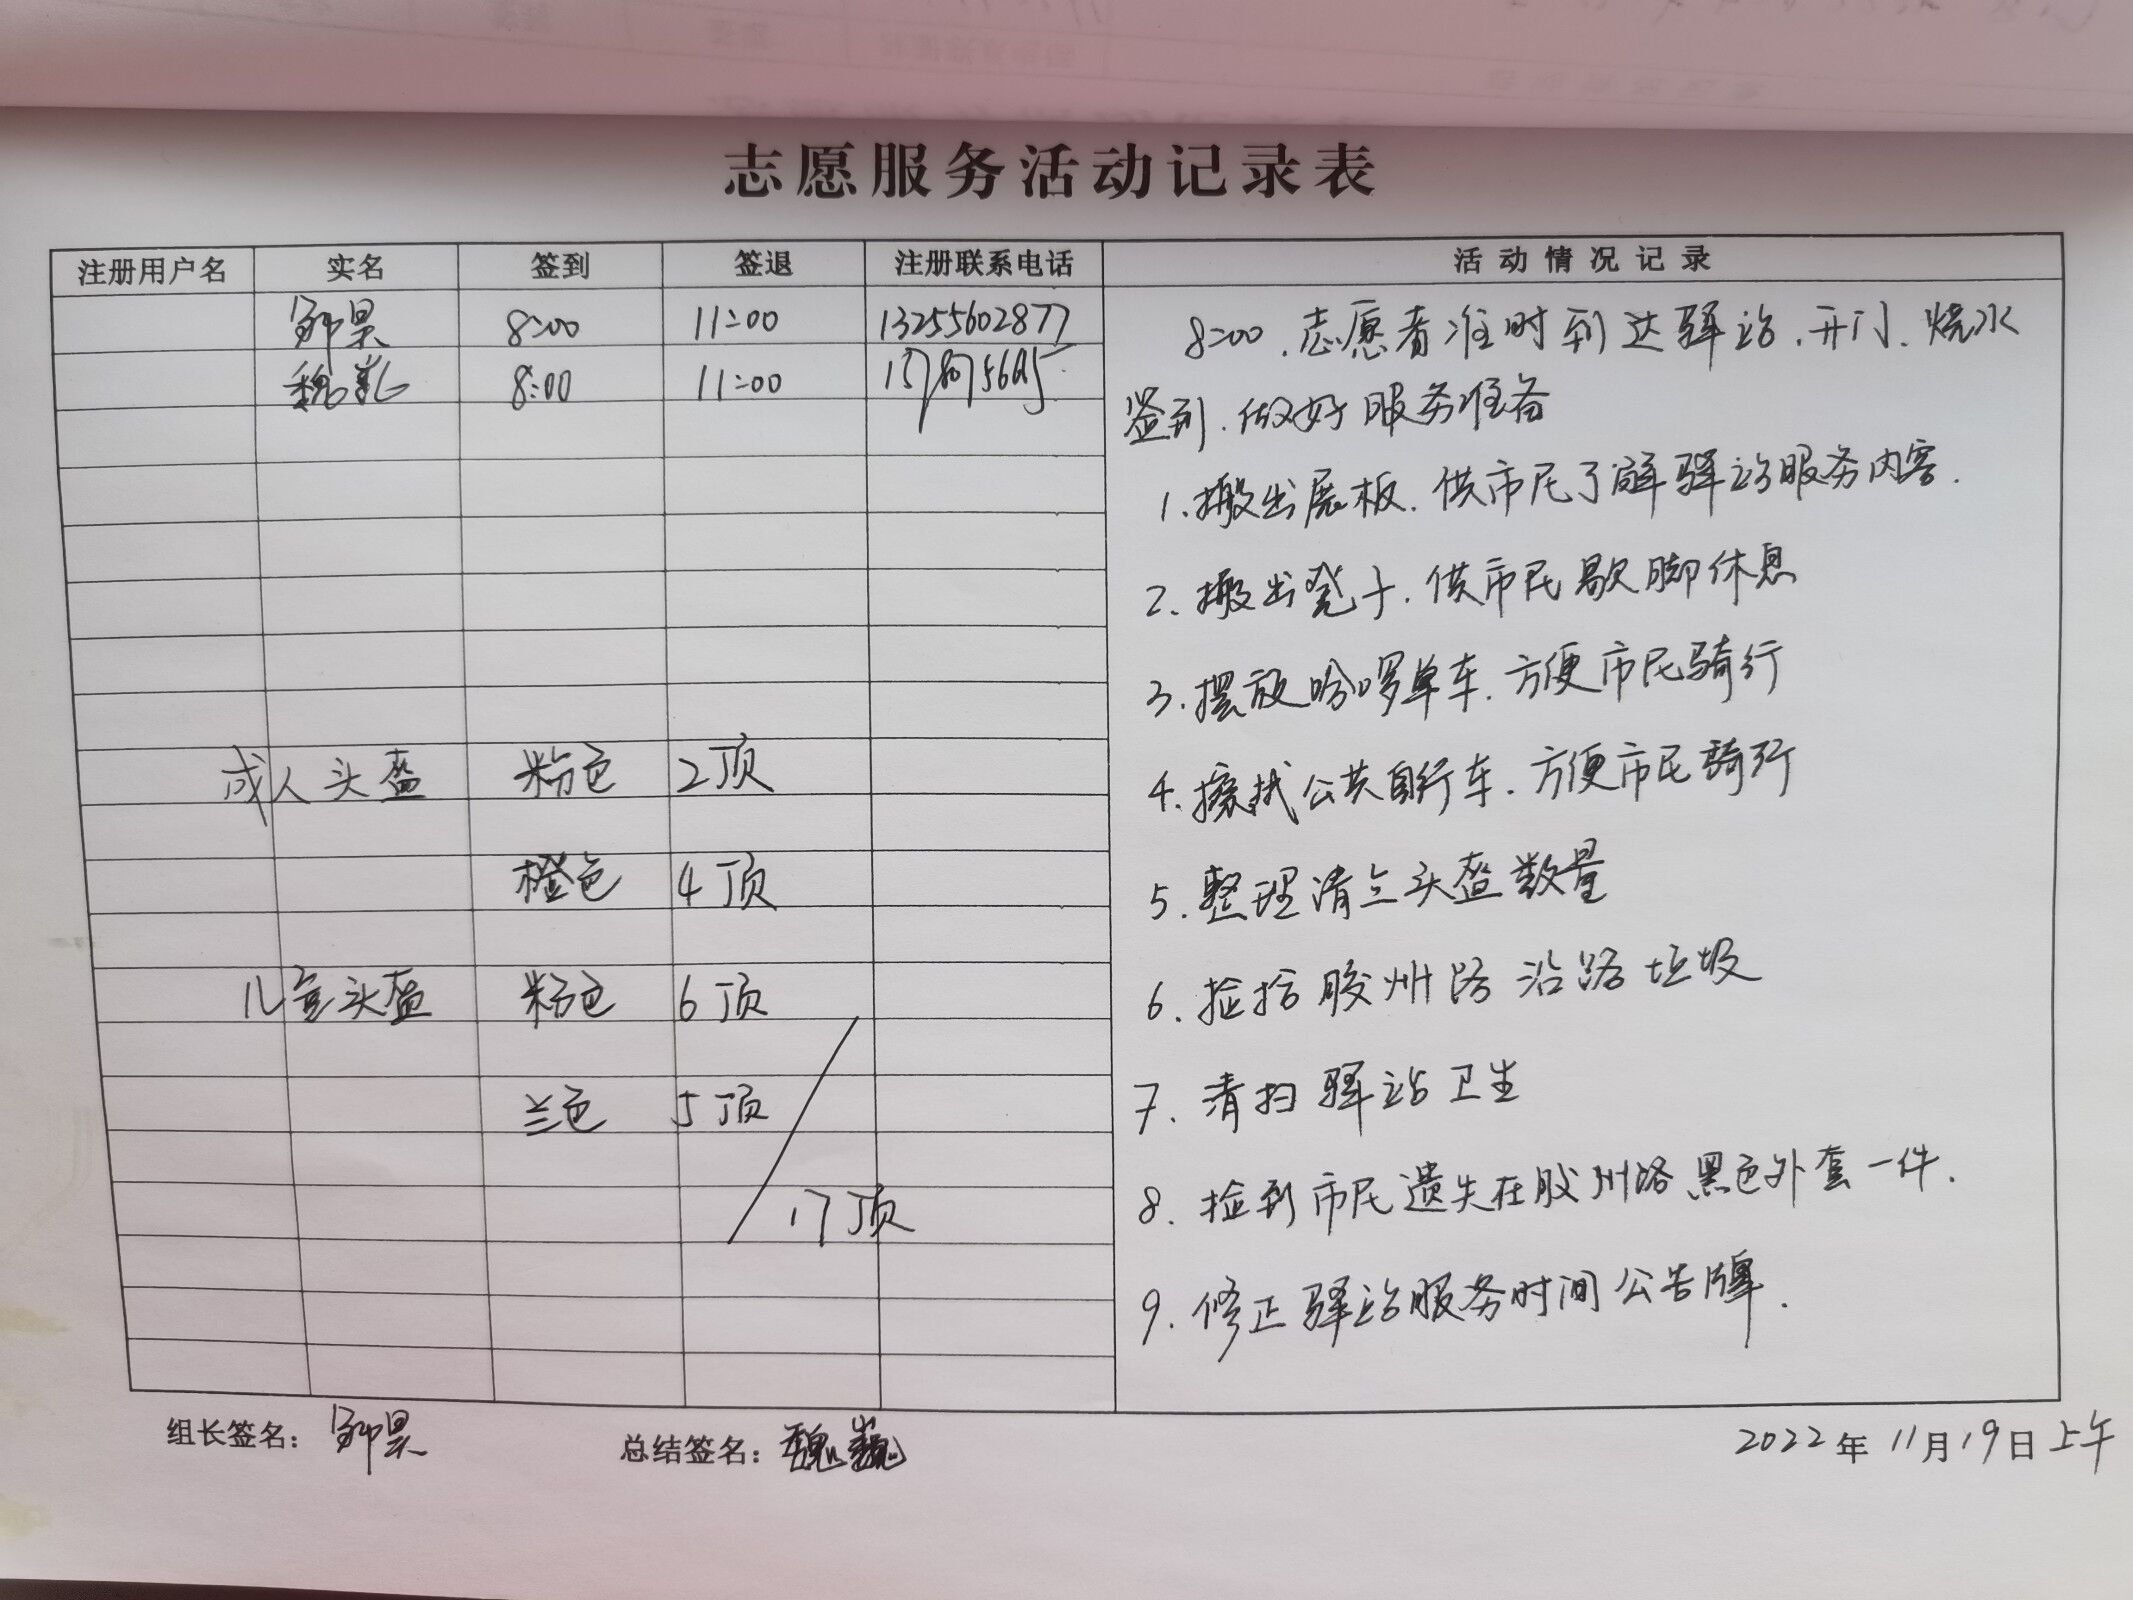 志愿服务活动记录表
注册用户名 实名 签到 签退 注册联系电话 活动情况记录
昊 8:00 11:00 13255602877
魏 8:00 11:00
8:00.志愿者准时到达驿站.开门.烧水
签到.做好服务准备
1.搬出展板.供市民了解驿站服务内容.
2.搬出凳子.供市民歇脚休息
3.摆放哈啰单车.方便市民骑行
成人头盔 粉色 2顶
4.擦拭公共自行车.方便市民骑行
橙色 4顶
5.整理清点头盔数量
儿童头盔 粉色 6顶
6.捡拾胶州路沿路垃圾
兰色 5顶
7.清扫驿站卫生
17顶
8.捡到市民遗失在胶州路黑色外套一件.
9.修正驿站服务时间公告牌.
组长签名: 昊 总结签名: 魏巍 2022年11月19日上午